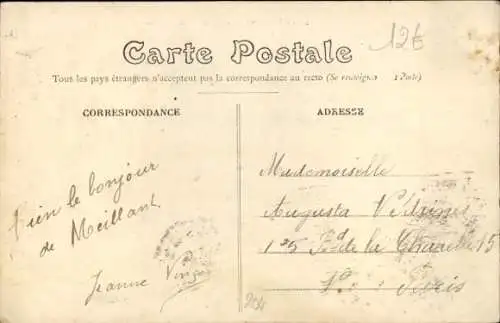 12€
Carte Postale
Tous les pays étrangers n'acceptent pas la correspondance au recto (Se renseigner à la Poste)
CORRESPONDANCE
ADRESSE
Bien le bonjour
de Meillant
Jeanne
Mademoiselle
Augusta
125 Bd de la Chapelle 15
Paris
204